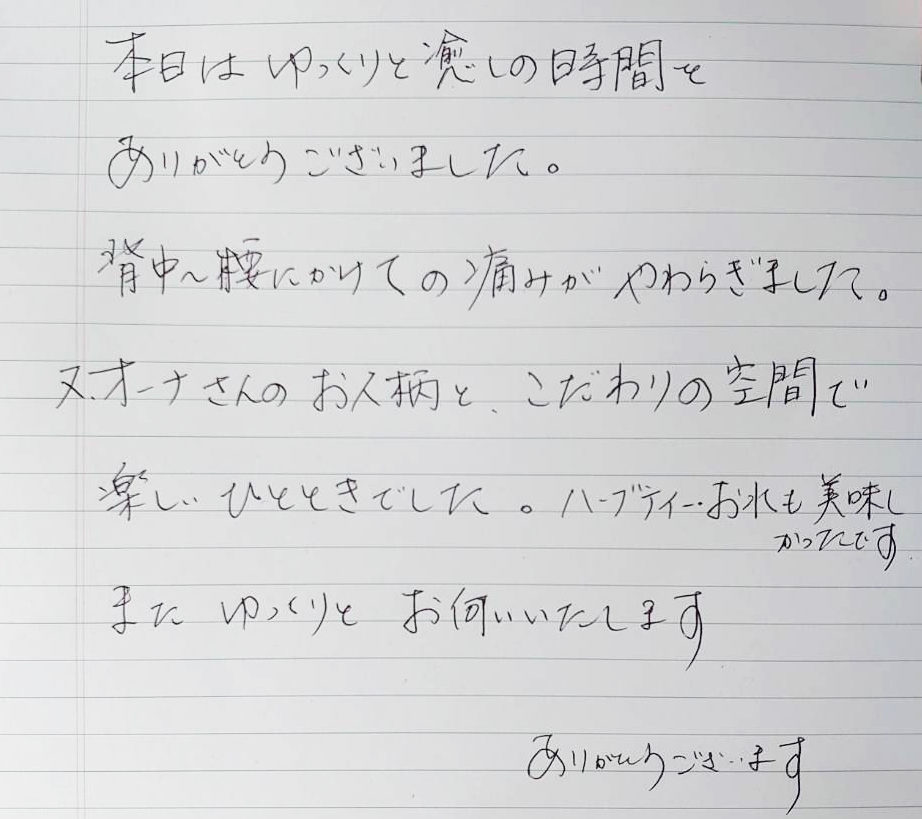 本日は ゆっくりと癒しの時間を
ありがとうございました。
背中~腰にかけての痛みが やわらぎました。
又、オーナさんの お人柄と、こだわりの空間で
楽しい ひとときでした。ハーブティー・お水も美味し
かったです
また ゆっくりと お伺いいたします
ありがとうございます